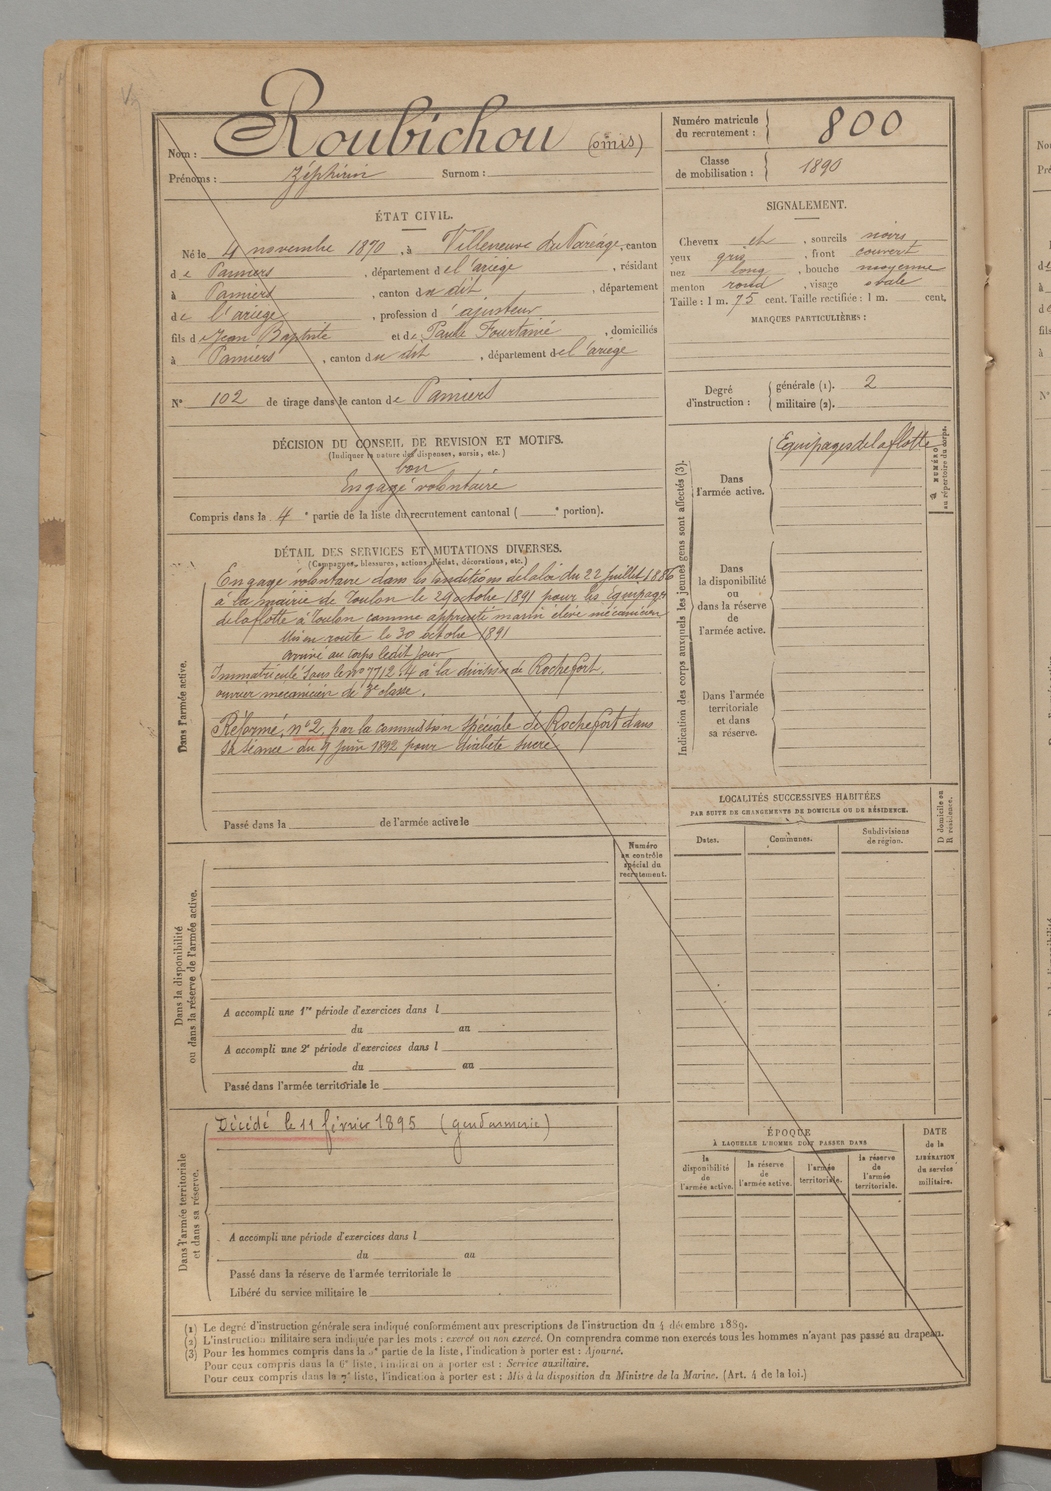 Nom : Roubichou (omis)
Prénoms : Zéphirin Surnom :
Numéro matricule du recrutement : 800
Classe de mobilisation : 1890
ÉTAT CIVIL.
Né le 4 novembre 1870, à Villeneuve du Paréage, canton
de Pamiers, département de l'ariège, résidant
à Pamiers, canton du dit, département
de l'ariège, profession d'ajusteur
fils de Jean Baptiste et de Paule Fourtanié, domiciliés
à Pamiers, canton du dit, département de l'ariège
N° 102 de tirage dans le canton de Pamiers
SIGNALEMENT.
Cheveux et, sourcils noirs
yeux gris, front couvert
nez long, bouche moyenne
menton rond, visage ovale
Taille : 1 m. 75 cent. Taille rectifiée : 1 m. cent.
MARQUES PARTICULIÈRES :
Degré d'instruction : générale (1). 2
militaire (2).
DÉCISION DU CONSEIL DE REVISION ET MOTIFS.
(Indiquer la nature des dispenses, sursis, etc.)
bon
Engagé volontaire
Compris dans la 4e partie de la liste du recrutement cantonal ( e portion).
DÉTAIL DES SERVICES ET MUTATIONS DIVERSES.
(Campagnes, blessures, actions d'éclat, décorations, etc.)
Dans l'armée active.
Engagé volontaire dans les conditions de la loi du 22 juillet 1886
à la mairie de Toulon le 29 octobre 1891 pour les équipages
de la flotte à Toulon comme apprenti marin élève mécanicien
Mis en route le 30 octobre 1891
arrivé au corps ledit jour
Immatriculé sous le no 7712.4 à la division de Rochefort.
ouvrier mécanicien de 3e classe.
Réformé no 2, par la commission spéciale de Rochefort dans
sa séance du 9 juin 1892 pour diabète sucré
Passé dans la de l'armée active le
Dans la disponibilité
ou dans la réserve de l'armée active.
Numéro
au contrôle
spécial du
recrutement.
A accompli une 1re période d'exercices dans l
du au
A accompli une 2e période d'exercices dans l
du au
Passé dans l'armée territoriale le
Dans l'armée territoriale
et dans sa réserve.
Décédé le 11 février 1895 (gendarmerie)
A accompli une période d'exercices dans l
du au
Passé dans la réserve de l'armée territoriale le
Libéré du service militaire le
Indication des corps auxquels les jeunes gens sont affectés (3).
Dans
l'armée active.
Equipages de la flotte
NUMÉRO
au répertoire du corps.
Dans
la disponibilité
ou
dans la réserve
de
l'armée active.
Dans l'armée
territoriale
et dans
sa réserve.
LOCALITÉS SUCCESSIVES HABITÉES
PAR SUITE DE CHANGEMENTS DE DOMICILE OU DE RÉSIDENCE.
Dates. Communes. Subdivisions de région. D domicile ou R résidence.
ÉPOQUE
À LAQUELLE L'HOMME DOIT PASSER DANS
la disponibilité de l'armée active.
la réserve de l'armée active.
l'armée territoriale.
la réserve de l'armée territoriale.
DATE
de la
LIBÉRATION
du service
militaire.
(1) Le degré d'instruction générale sera indiqué conformément aux prescriptions de l'instruction du 4 décembre 1889.
(2) L'instruction militaire sera indiquée par les mots : exercé ou non exercé. On comprendra comme non exercés tous les hommes n'ayant pas passé au drapeau.
(3) Pour les hommes compris dans la 5e partie de la liste, l'indication à porter est : Ajourné.
Pour ceux compris dans la 6e liste, l'indication à porter est : Service auxiliaire.
Pour ceux compris dans la 7e liste, l'indication à porter est : Mis à la disposition du Ministre de la Marine. (Art. 4 de la loi.)